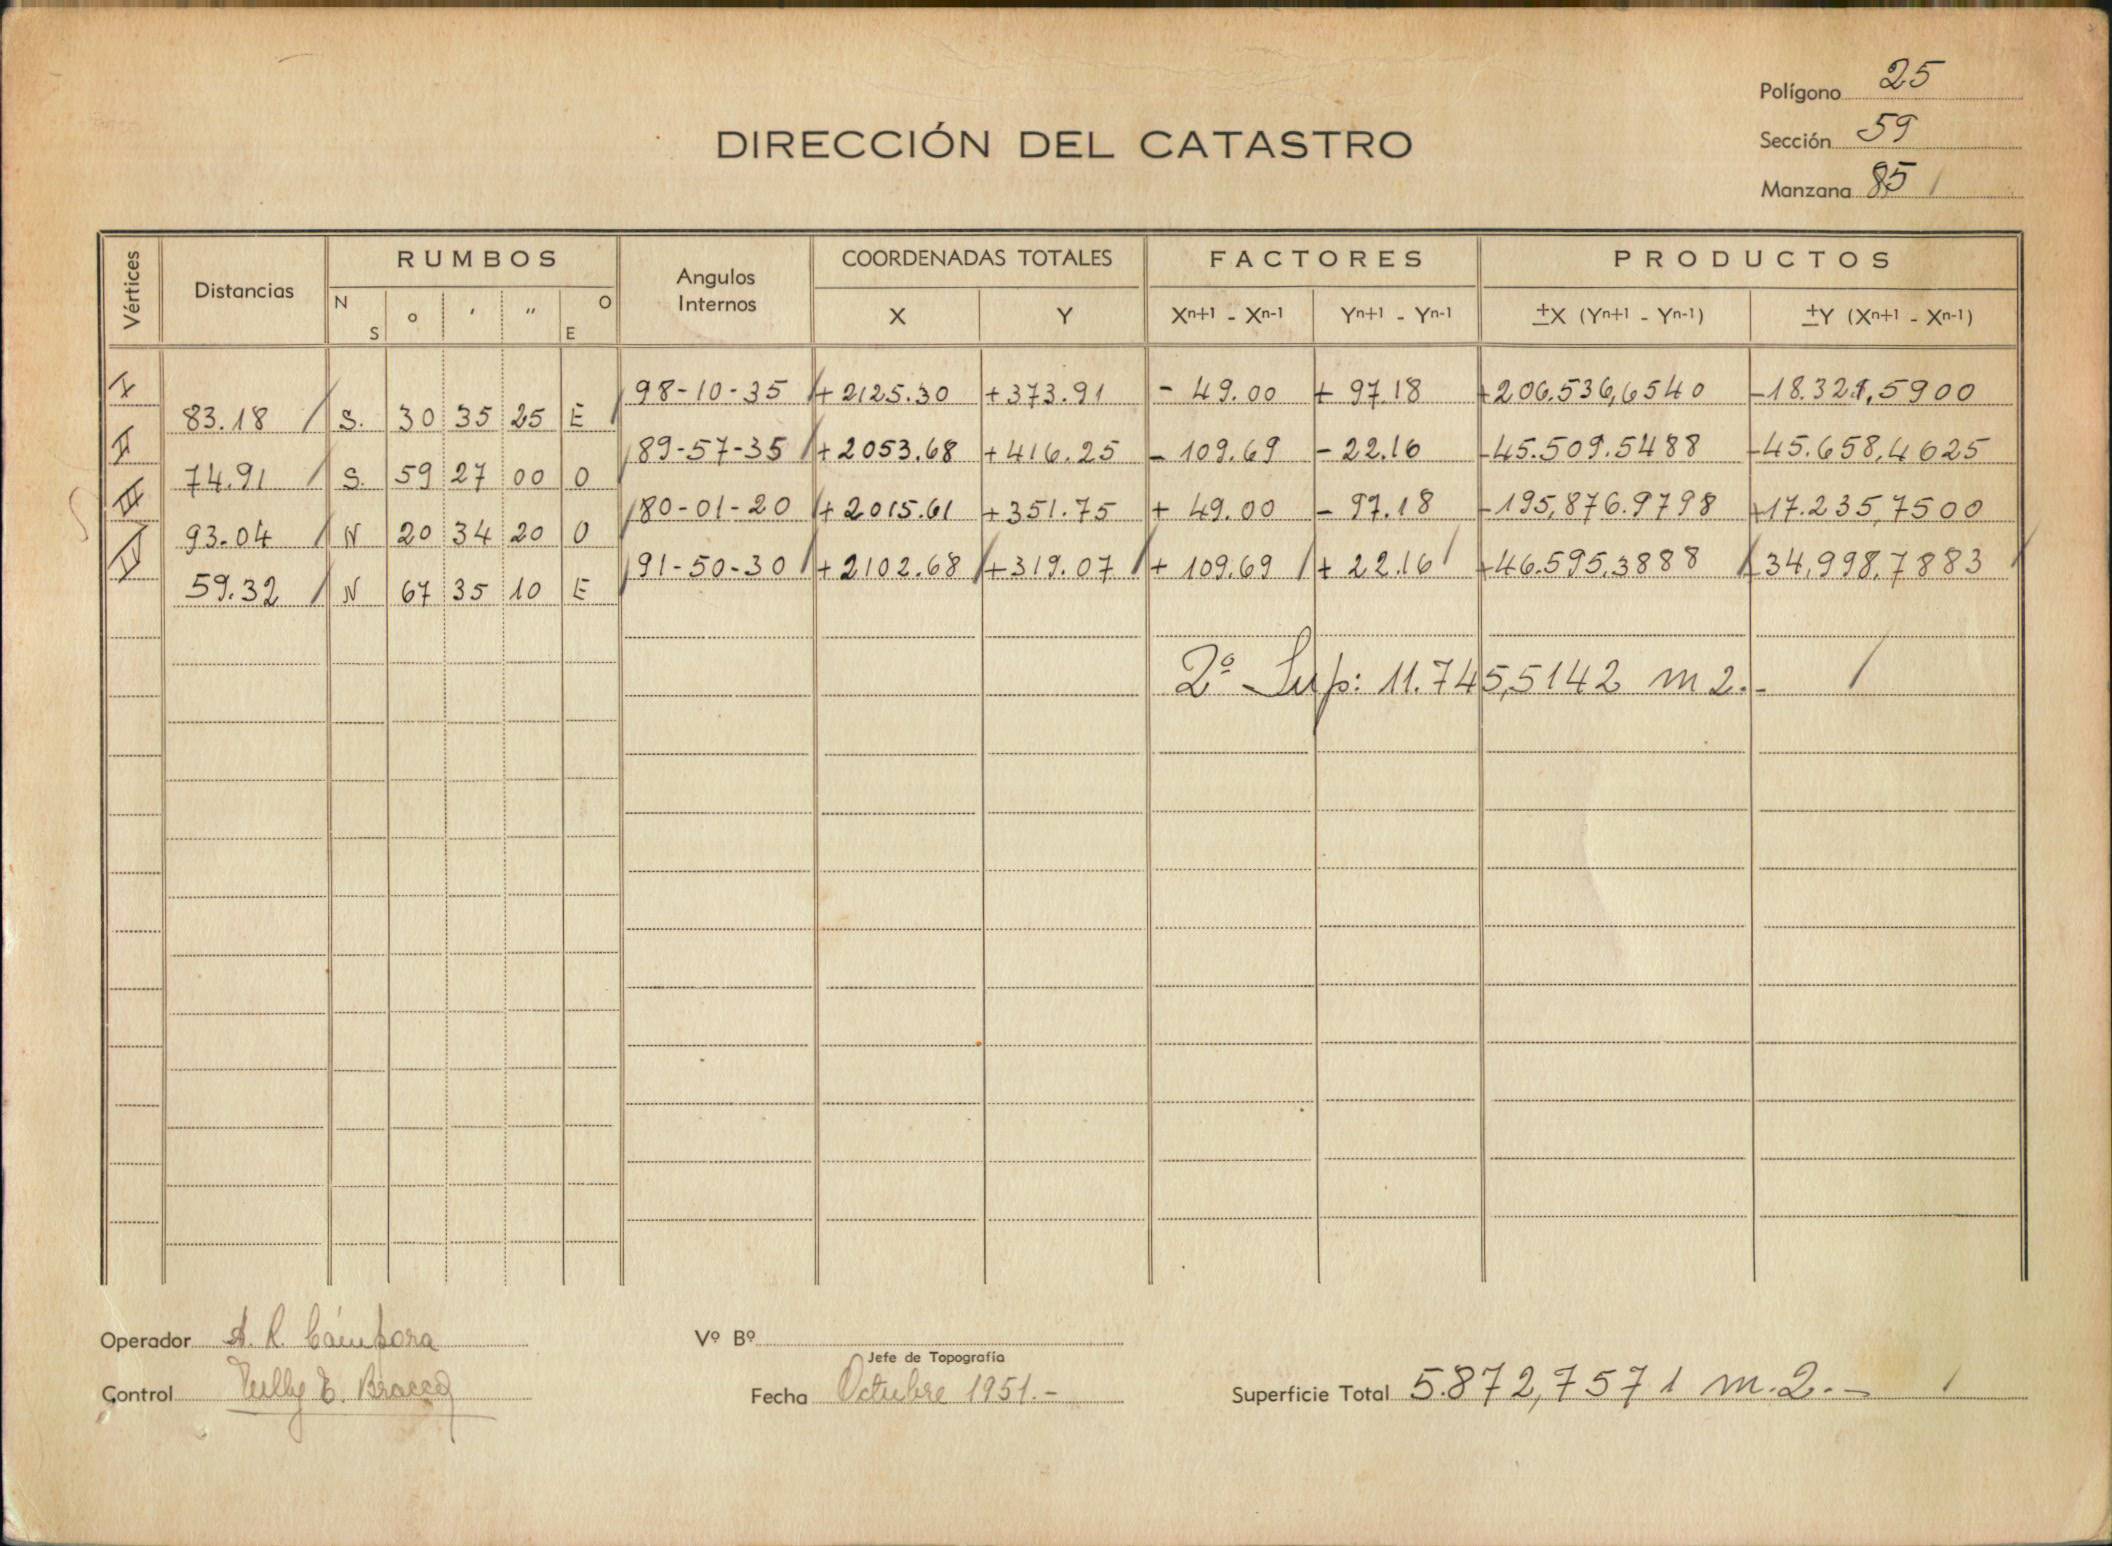 Polígono 25
DIRECCIÓN DEL CATASTRO
Sección 59
Manzana 85
Vértices Distancias RUMBOS Angulos Internos COORDENADAS TOTALES FACTORES PRODUCTOS
N S o ' " O E X Y Xn+1 - Xn-1 Yn+1 - Yn-1 ±X (Yn+1 - Yn-1) ±Y (Xn+1 - Xn-1)
I 98-10-35 +2125.30 +373.91 - 49.00 + 97.18 +206.536,6540 -18.321,5900
83.18 S. 30 35 25 E
II 89-57-35 +2053.68 +416.25 - 109.69 - 22.16 -45.509.5488 -45.658,4625
74.91 S. 59 27 00 O
III 80-01-20 +2015.61 +351.75 + 49.00 - 97.18 -195,876.9798 +17.235,7500
93.04 N 20 34 20 O
IV 91-50-30 +2102.68 +319.07 + 109.69 + 22.16 +46.595,3888 +34,998,7883
59.32 N 67 35 10 E
2º Sup: 11.745,5142 m2.-
Operador A. R. Cámpora Vº Bº
Jefe de Topografía
Control E. Fecha Octubre 1951.- Superficie Total 5.872,7571 m.2.-